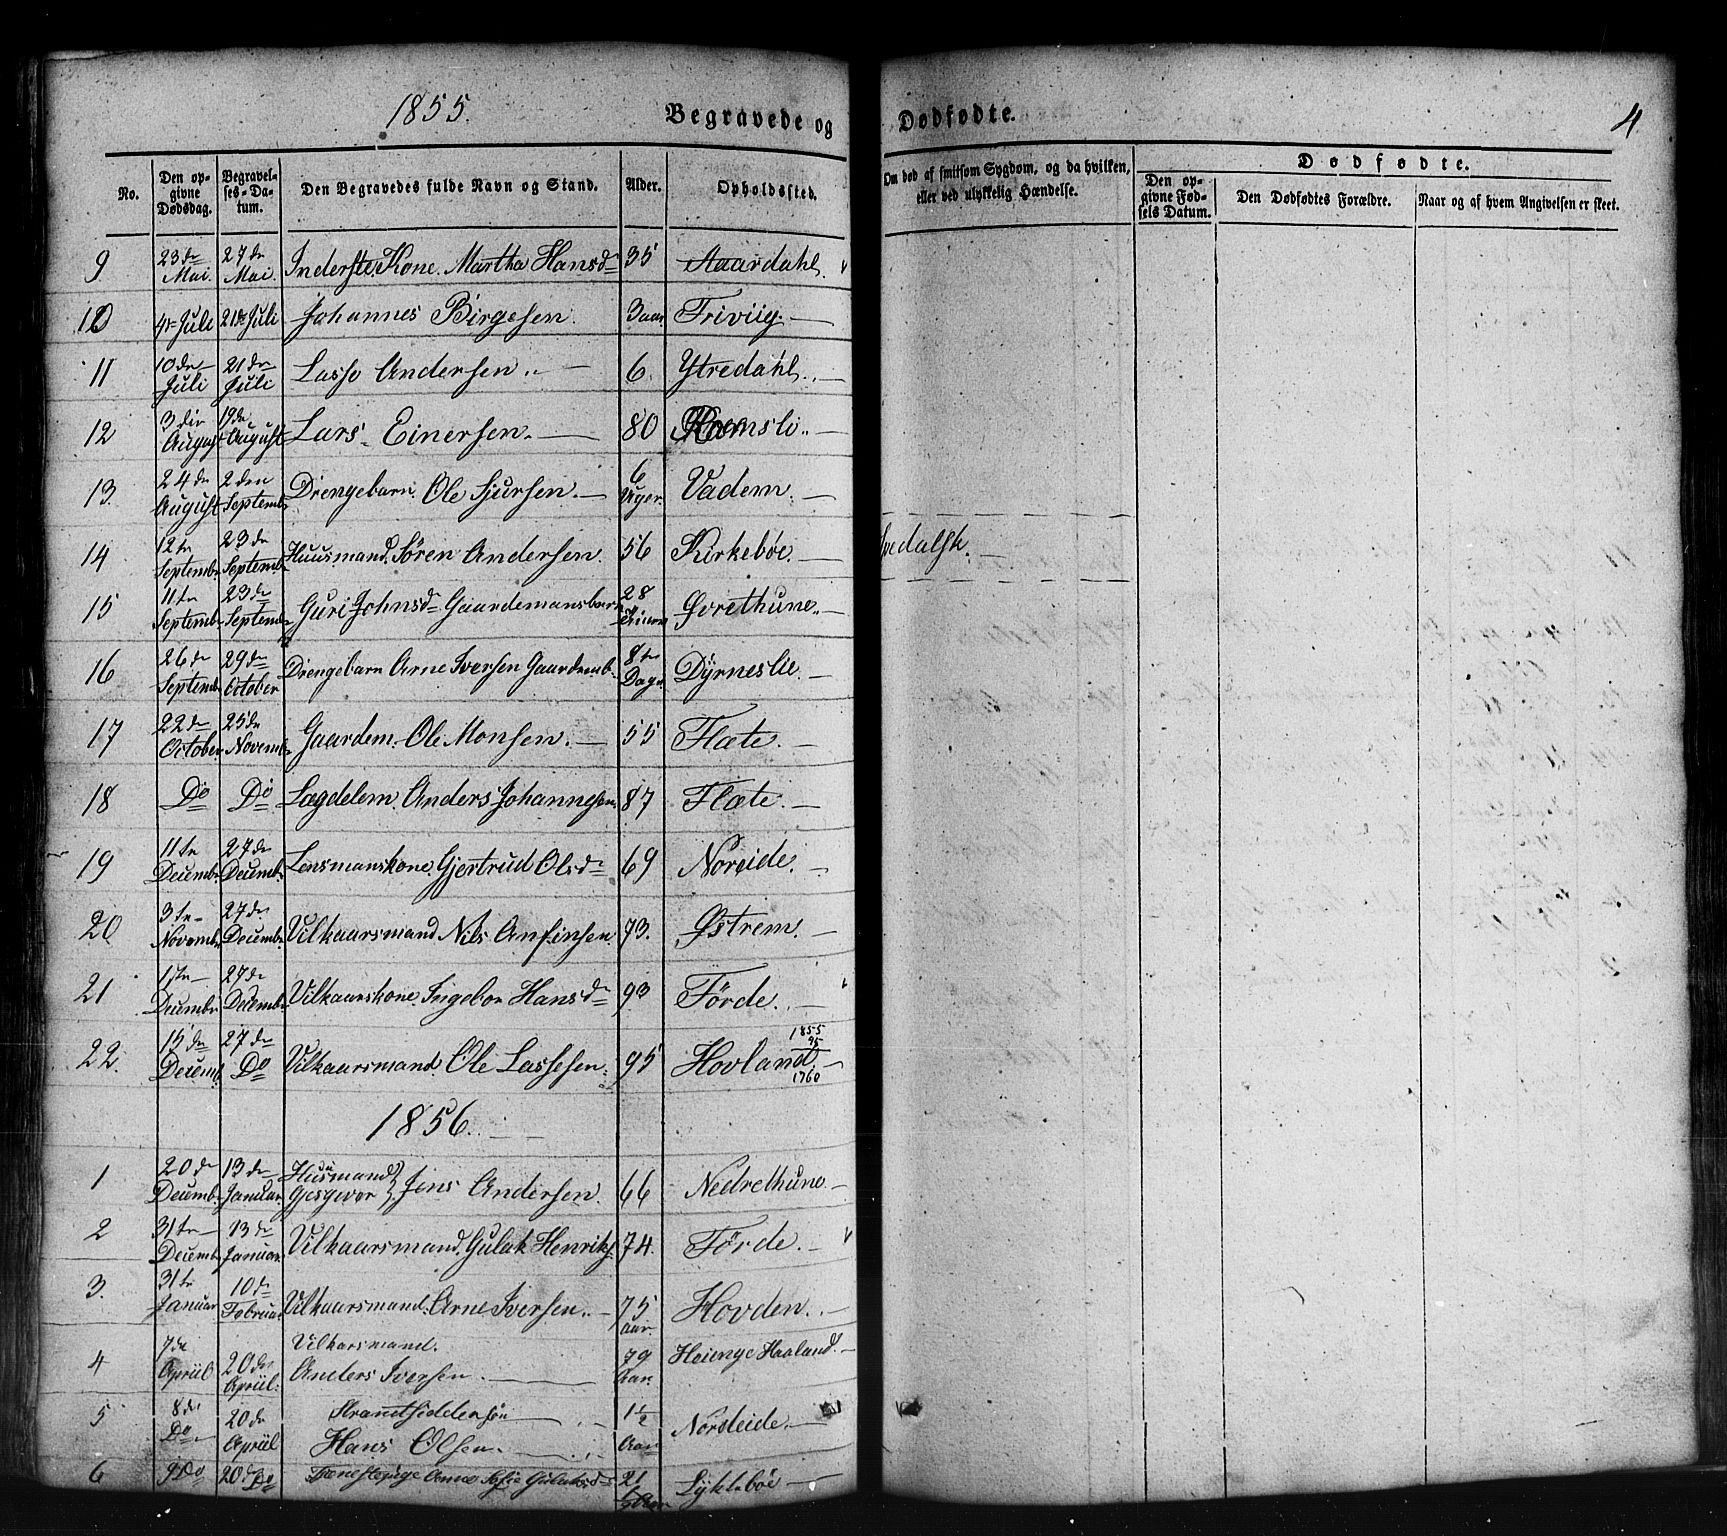 1855.
Begravede og Dødfødte.
4
No.
Den opgivne Dødsdag.
Begravelses-Datum.
Den Begravedes fulde Navn og Stand.
Alder.
Opholdssted.
Om død af smitsom Sygdom, og da hvilken, eller ved ulykkelig Hændelse.
Dødfødte.
Den opgivne Fødsels Datum.
Den Dødfødtes Forældre.
Naar og af hvem Angivelsen er skeet.
9 23de Mai. 27de Mai. Inderste Kone Martha Hansd 35 Aaardahl.
10 4de Juli 21de Juli Johannes Birgesen. 3 aar Triviig
11 10de Juli 21de Juli Lasse Andersen. 6. Ytredahl.
12 3die August 19de August Lars Einersen. 80 Ramsli.
13. 24de August 2den Septembr Drengebarn Ole Sjursen. 6 Uger. Vadem.
14 12te Septembr 23de Septembr Huusmand. Sören Andersen. 56 Kirkebøe.
15 11te Septembr 23de Septembr Guri Johnsd Gaardemansbarn 28 Øvrethune.
16 26de Septembr 29de October Drengebarn Arne Iversen Gaardmb. 8te Dage Dyrneslie.
17 22de October 25de Novembr Gaardem. Ole Monsen. 55 Flæte.
18 Do Do Lægdelem. Anders Johannesen 87 Flæte
19 11te Decembr 27de Decembr Lensmanskone Gjertrud Olsd 69 Noreide.
20 3te Novembr 27de Decembr Vilkaarsmand Nils Anfinsen 73. Østrem.
21 1te Decembr 27de Decembr Vilkaarskone. Ingebor Hansd 93 Förde.
22. 15de Decemb. 27de Do Vilkaarsmand. Ole Lassesen. 95 Hovland.
1855
95
1760
1856.
1 20de Decemb. 13de Januar Huusmand Gjesgiver Jens Andersen. 66 Nedrethune
2 31te Decemb 13de Januar. Vilkaarsmand. Gulak Henriks. 74. Förde.
3. 31te Januar 10de Februar Vilkaarsmand. Arne Iversen. 75 aar. Hovden.
4 7de April 20de April. Vilkarsmand. Anders Iversen. 79 Aar. Heienge Haaland.
5 8de Do 20de April Strandsiddersøn Hans Olsen. 1½ Aar Nordeide.
6 9 Do 20de Do Tjenestepige Anne Sofie Gulaksd 21 Lyklebøe